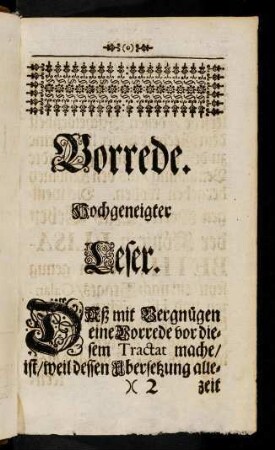 (o)
Vorrede.
Hochgeneigter
Leser.
DAß mit Vergnügen
eine Vorrede vor die-
sem Tractat mache/
ist/ weil dessen Ubersetzung alle-
)( 2 zeit